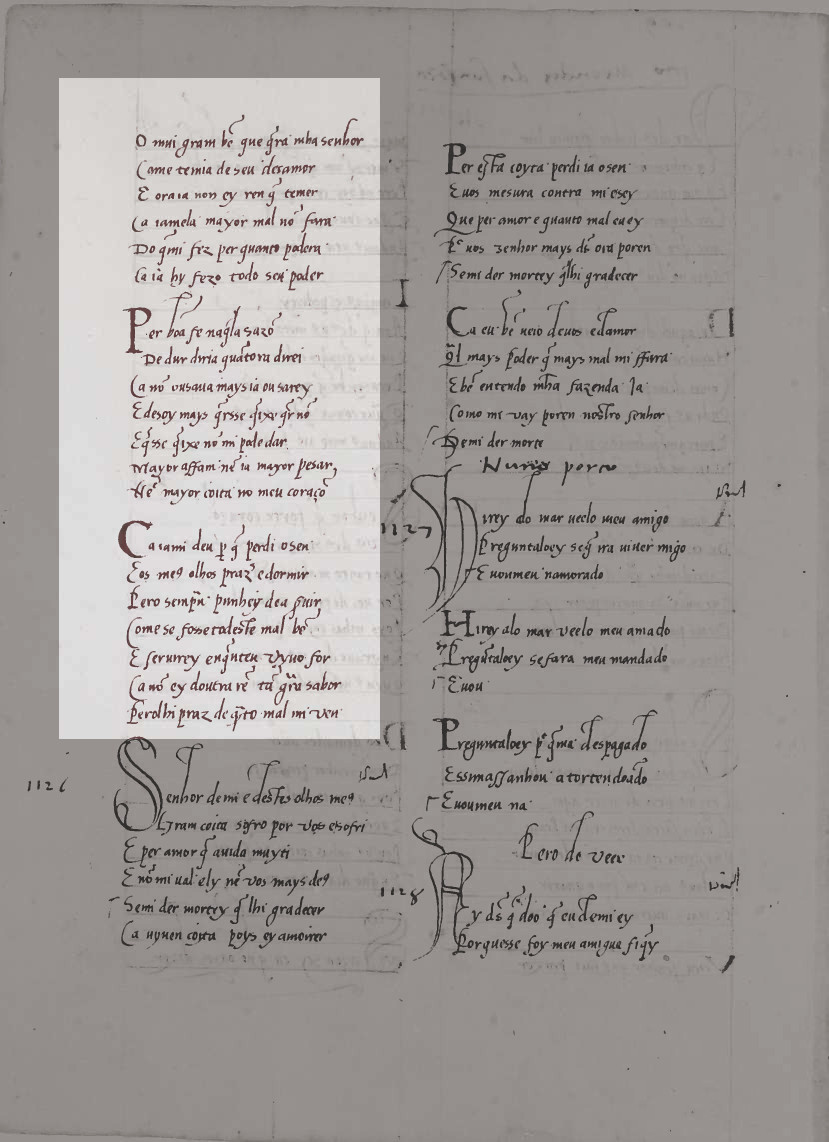 O mui gram bē que q̄ria mha senhor
Come temia de seu desamor
E ora ia non ey ren q̄ temer
Ca iamela mayor mal nō fara
Do q̄mi fez per quanto podera
Ca ia hy fezo todo seu poder
Per boa fe naq̄la sazō
De dur diria quātora direi
Ca nō ousaua mays ia ousarey
E desoy mays
E q̄sse q̄ixe nō mi pode dar
Mayor affam nē ia mayor pesar
Nē mayor coita no meu coraçō
Ca iami deu p̄ q̄ perdi o sen
Eos meꝯ olhos praz̄ e dormir
Pero semp̄ punhey dea s̄uir
Come se fosse todeste mal bē
E seruirey enq̄nteu vyuo for
Ca nō ey doutra rē tā grā sabor
Perolhi praz de q̄to mal mi ven
1126
Senhor demi e destes olhos meꝯ
Gram coita sofro por vos e sofri
E per amor q̄ auida muyei
E nō mi ual ely nē vos mays deꝯ
Semi der mortey q̄ lhi gradecer
Ca uyuen coita poys ey amorrer
Per esta coyta perdi ia o sen
Euos mesura contra mi esey
Que per amor e quanto mal eu ey
Pᵉ uos senhor mays ds̄ ora poren
Semi der mortey q̄lhi gradecer
Ca eu bē ueio deuos edamor
Q̄l mays poder q̄ mays mal mi ffara
Ebē entendo mha fazenda Ja
Como mi vay poren nostro senhor
Semi der morte
Nuno porco
1127
Irey alo mar veelo meu amigo
Preguntaloey seq̄rra uiuer migo
E uoumeu namorado
Hirey alo mar veelo meu amado
Preguntaloey se fara meu mandado
E uou
Preguntaloey pᵉ q̄ma despagado
Essmassanhou a tortendoado
E uoumeu na
Pero de veer
1128
Ay ds̄ q̄ doo q̄ eu demi ey
Porquesse foy meu amigu a fiq̄y